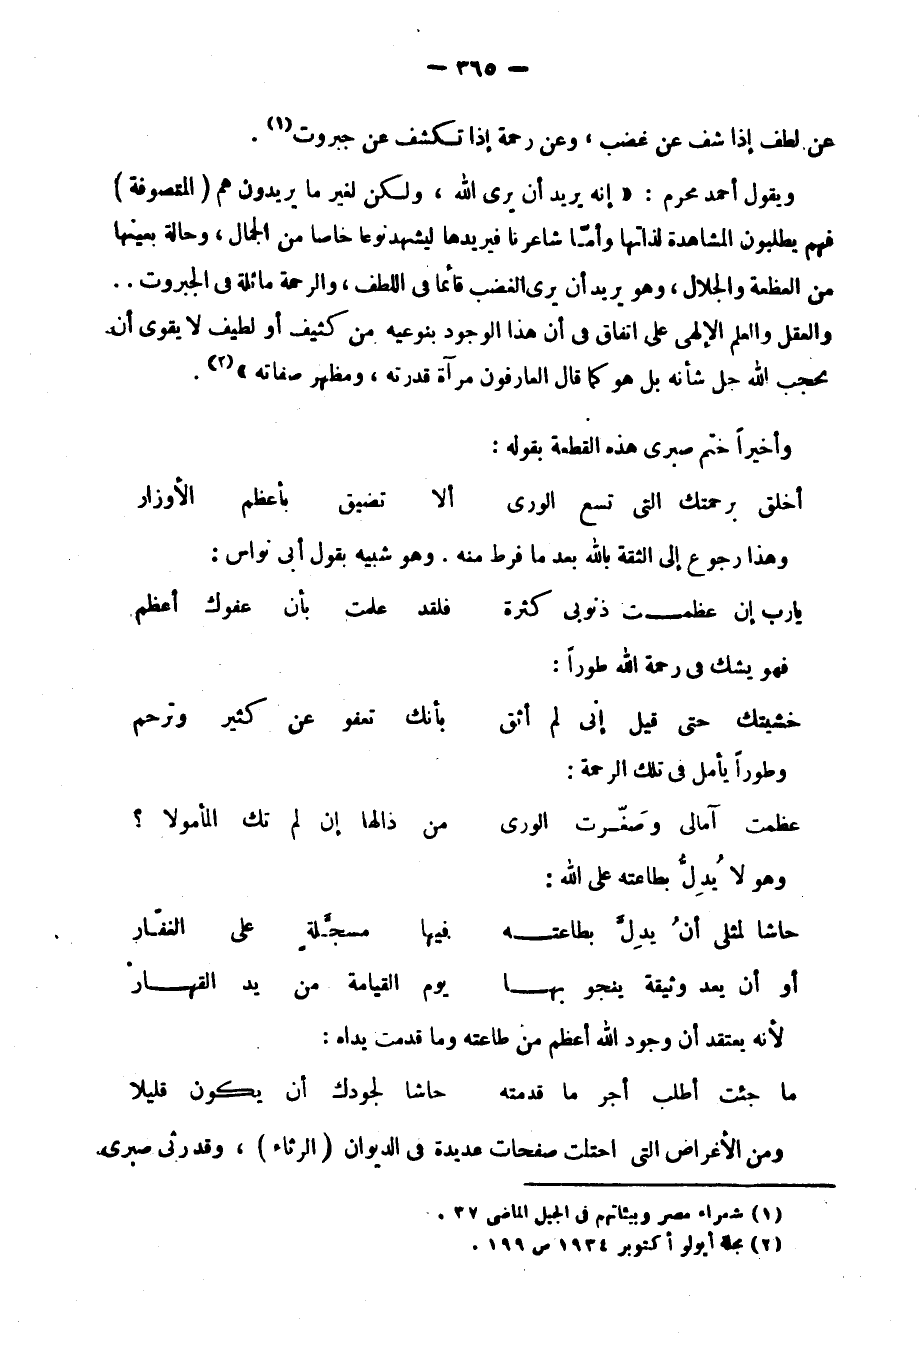 — ٣٦٥ —
عن لطف إذا شف عن غضب ، وعن رحمة إذا تكشف عن جبروت (١) .
ويقول أحمد محرم : « إنه يريد أن يرى الله ، ولكن لغير ما يريدون هم ( المتصوفة )
فهم يطلبون المشاهدة لذاتها وأمّا شاعرنا فيريدها ليشهد نوعا خاصا من الجمال ، وحالة بعينها
من العظمة والجلال ، وهو يريد أن يرى الغضب قائما فى اللطف ، والرحمة ماثلة فى الجبروت ..
والعقل والعلم الإلهى على اتفاق فى أن هذا الوجود بنوعيه من كثيف أو لطيف لا يقوى أن
يحجب الله جل شأنه بل هو كما قال العارفون مرآة قدرته ، ومظهر صفاته » (٢) .
وأخيراً ختم صبرى هذه القطعة بقوله :
أخلق برحمتك التى تسع الورى ألا تضيق بأعظم الأوزار
وهذا رجوع إلى الثقة بالله بعد ما فرط منه . وهو شبيه بقول أبى نواس :
يارب إن عظمــت ذنوبى كثرة فلقد علمت بأن عفوك أعظم
فهو يشك فى رحمة الله طوراً :
خشيتك حتى قيل إنى لم أثق بأنك تعفو عن كثير وترحم
وطوراً يأمل فى تلك الرحمة :
عظمت آمالى وصَغّـرت الورى من ذالها إن لم تك المأمولا ؟
وهو لا يُدِلُّ بطاعته على الله :
حاشا لمثلى أن يدِلَّ بطاعتــه فيها مسجَّلةٍ على النفّـار
أو أن يعد وثيقة ينجو بهــا يوم القيامة من يد القهــار
لأنه يعتقد أن وجود الله أعظم من طاعته وما قدمت يداه :
ما جئت أطلب أجر ما قدمته حاشا لجودك أن يكون قليلا
ومن الأغراض التى احتلت صفحات عديدة فى الديوان ( الرثاء ) ، وقد رثى صبرى
(١) شعراء مصر وبيئاتهم فى الجيل الماضى ٣٧ .
(٢) مجلة أبولو أكتوبر ١٩٣٤ ص ١٩٩ .